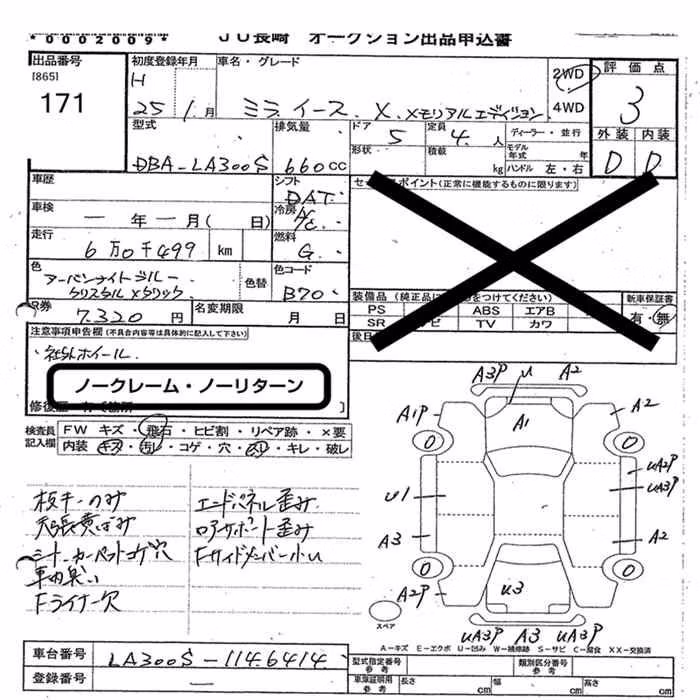 *0002009*
JU長崎 オークション出品申込書
出品番号
[865]
171
初度登録年月
H
25 1月
車名・グレード
ミラ イース X メモリアルエディション
2WD
4WD
評価点
3
外装 内装
D D
型式
DBA-LA300S
排気量
660cc
ドア
5
定員
4人
形状
積載
kg
ディーラー・並行
モデル年式 年
ハンドル 左・右
車歴
シフト
DAT
車検
一年一月( 日)
冷房
A/C
走行
6万0千499 km
燃料
G
色
アーバンナイトブルークリスタルメタリック
色替
色コード
B70
R券
7.320円
名変期限
月 日
セールスポイント(正常に機能するものに限ります)
装備品(純正品に をつけてください)
PS ABS エアB
SR ナビ TV カワ
新車保証書
有・無
後日
注意事項申告欄(不具合内容等は具体的に記入して下さい)
社外ホイール
ノークレーム・ノーリターン
修復歴 有(箇所 )
検査員記入欄
FW キズ・飛石・ヒビ割・リペア跡・×要
内装 キズ・汚れ・コゲ・穴・スリ・キレ・破レ
板チのみ
天張黄ばみ
シート、カーペットコゲ穴
車内臭い
Fライナー欠
エンドパネル歪み
ロアサポート歪み
Fサイドメンバー小U
A3P U A2
A1P A1 A2
0 0
U1 UA2P
UA3P
A3 A2
0 0
A2P U3
UA3P A3 UA3P
スペア
A-キズ E-エクボ U-凹み W-補修跡 S-サビ C-腐食 XX-交換済
車台番号
LA300S-1146414
登録番号
型式指定番号 参考
類別区分番号 参考
車庫証明用 参考
長さ cm 幅 cm 高さ cm